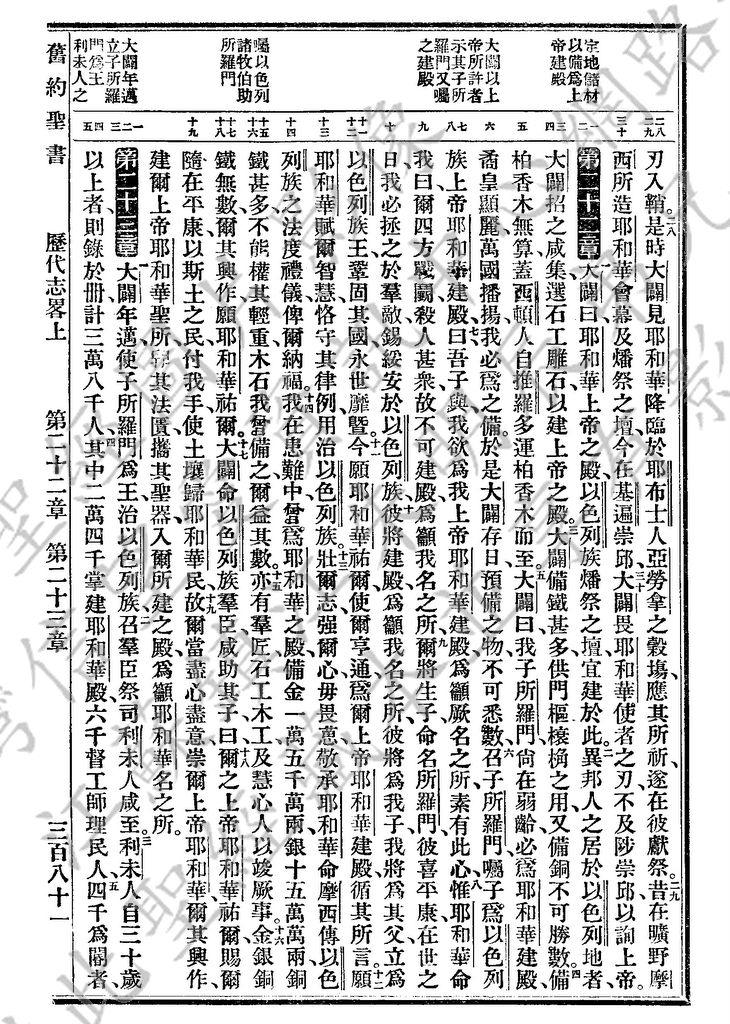 宗地儲材
以備爲上
帝建殿
大闢以上
帝所許者
示其子所
羅門又囑
之建殿
囑以色列
諸牧伯助
所羅門
大闢年邁
立子所羅
門爲王
利未人之
刃入鞘是時大闢見耶和華降臨於耶布士人亞勞拿之穀塲應其所祈遂在彼獻祭昔在曠野摩
西所造耶和華會幕及燔祭之壇今在基遍崇邱大闢畏耶和華使者之刃不及陟崇邱以詢上帝
第二十二章 大闢曰耶和華上帝之殿以色列族燔祭之壇宜建於此異邦人之居於以色列地者
大闢招之咸集選石工雕石以建上帝之殿大闢備鐵甚多供門樞榱桷之用又備銅不可勝數備
柏香木無算蓋西頓人自推羅多運柏香木而至大闢曰我子所羅門尙在弱齡必爲耶和華建殿
矞皇顯麗萬國播揚我必爲之備於是大闢存日預備之物不可悉數召子所羅門囑子爲以色列
族上帝耶和華建殿曰吾子與我欲爲我上帝耶和華建殿爲籲厥名之所素有此心惟耶和華命
我曰爾四方戰鬭殺人甚衆故不可建殿爲籲我名之所爾將生子命名所羅門彼喜平康在世之
日我必拯之於羣敵錫綏安於以色列族彼將建殿爲籲我名之所彼將爲我子我將爲其父立爲
以色列族王鞏固其國永世靡暨今願耶和華祐爾使爾亨通爲爾上帝耶和華建殿循其所言願
耶和華賦爾智慧恪守其律例用治以色列族壯爾志强爾心毋畏葸敬承耶和華命摩西傳以色
列族之法度禮儀俾爾納福我在患難中曾爲耶和華之殿備金一萬五千萬兩銀十五萬萬兩銅
鐵甚多不能權其輕重木石我曾備之爾益其數亦有羣匠石工木工及慧心人以竣厥事金銀銅
鐵無數爾其興作願耶和華祐爾大闢命以色列族羣臣咸助其子曰爾之上帝耶和華祐爾賜爾
隨在平康以斯土之民付我手使土壤歸耶和華民故爾當盡心盡意崇爾上帝耶和華爾其興作
建爾上帝耶和華聖所舁其法匱攜其聖器入爾所建之殿爲籲耶和華名之所
第二十三章 大闢年邁使子所羅門爲王治以色列族召羣臣祭司利未人咸至利未人自三十歲
以上者則錄於册計三萬八千人其中二萬四千掌建耶和華殿六千督工師理民人四千爲閽者
舊約聖書 歷代志畧上 第二十二章 第二十三章 三百八十一